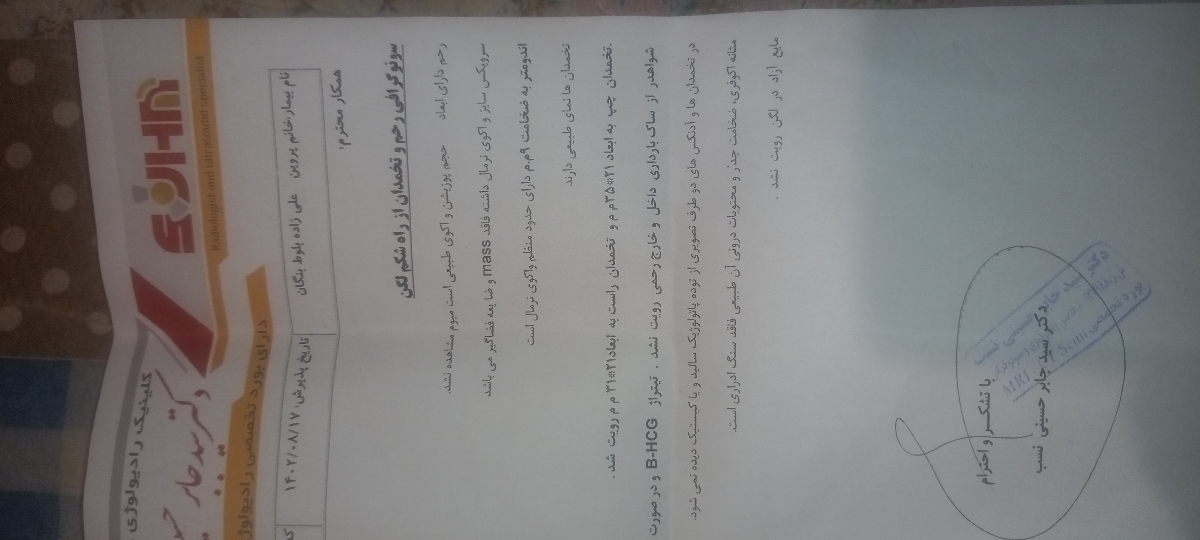 کلینیک رادیولوژی
دکتر سید جابر
Radiologist and ultrasound specialist
دارای بورد تخصصی رادیولوژ
نام بیمار:خانم پروین علی زاده بلوط بلگان
تاریخ پذیرش: ۱۴۰۲/۰۸/۱۷
همکار محترم:
سونوگرافی رحم و تخمدان از راه شکم لگن
رحم دارای ابعاد حجم پوزیشن و اکوی طبیعی است میوم مشاهده نشد.
سرویکس سایز و اکوی نرمال داشته فاقد mass و ضایعه فضاگیر می باشد
اندومتر به ضخامت ۹م.م دارای حدود منظم واکوی نرمال است
تخمدان ها نمای طبیعی دارند
تخمدان چپ به ابعاد ۲۱*۳۵م م و تخمدان راست به ابعاد۲۱*۳۱ م م رویت شد .
شواهدر از ساک بارداری داخل و خارج رحمی رویت نشد . تیتراژ B-HCG و در صورت
در تخمدان ها و آدنکس های دو طرف تصویری از توده پاتولوژیک سالید و یا کیستیک دیده نمی شود.
مثانه اکوفری، ضخامت جدار و محتویات درونی آن طبیعی فاقد سنگ ادراری است.
مایع آزاد در لگن رویت نشد .
با تشکر و احترام
دکتر سید جابر حسینی نسب
MRI